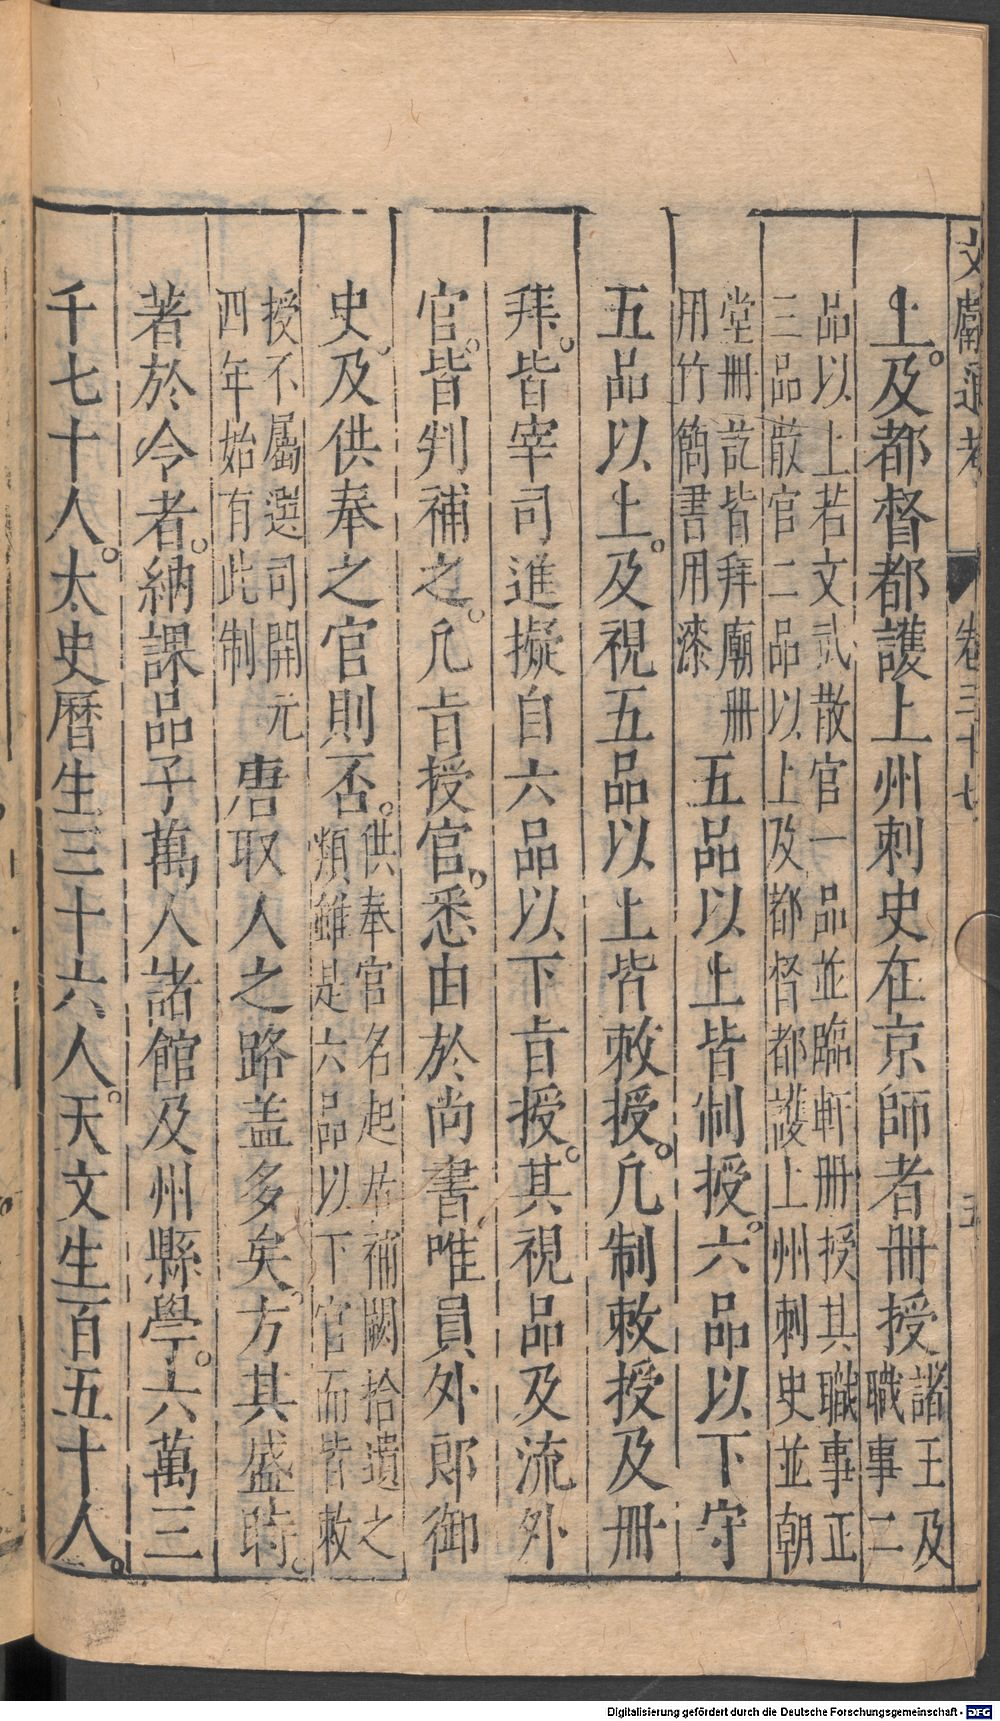 文獻通考 卷三十七 五
上。及都督都護上州刺史在京師者册授
諸王及
職事二
品以上若文武散官一品並臨軒册授其職事正
三品散官二品以上及都督都護上州刺史並朝
堂册訖皆拜廟册
用竹簡書用漆
五品以上皆制授。六品以下守
五品以上。及視五品以上皆敕授。凡制敕授及册
拜。皆宰司進擬自六品以下旨授。其視品及流外
官。皆判補之。凡旨授官。悉由於尚書唯員外郎御
史、及供奉之官則否。
供奉官名起居補闕拾遺之
類雖是六品以下官而皆敕
授不屬選司開元
四年始有此制
唐取人之路盖多矣。方其盛時。
著於令者。納課品子萬人諸館及州縣學。六萬三
千七十人。太史曆生三十六人。天文生百五十人。
Digitalisierung gefördert durch die Deutsche Forschungsgemeinschaft - DFG